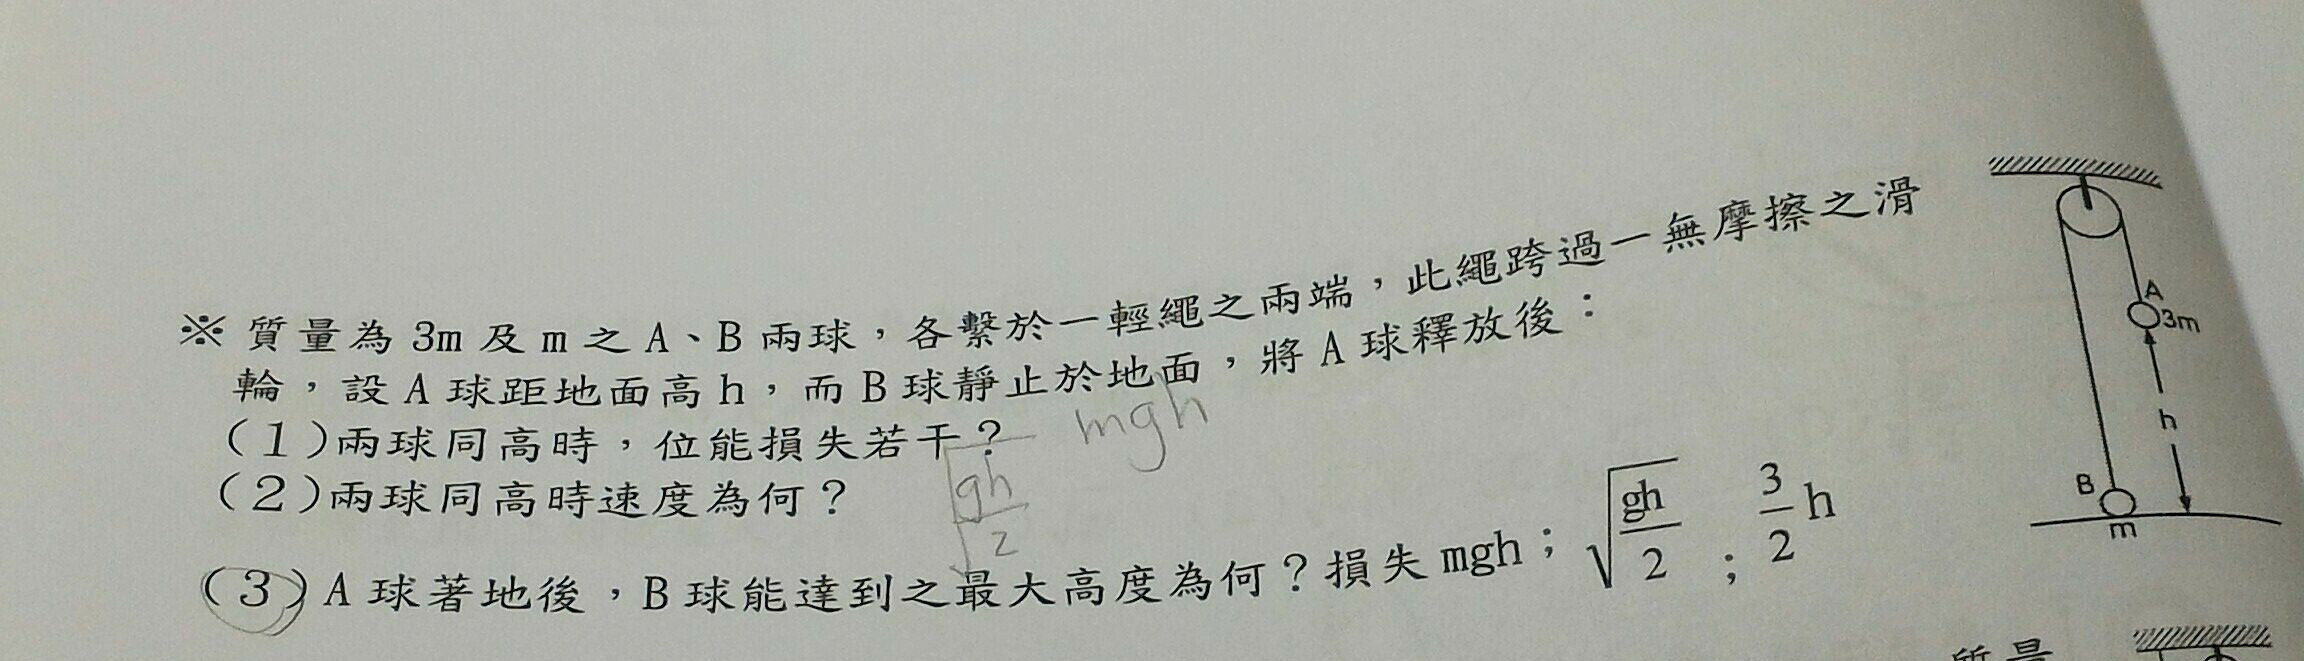 ※質量為3m及m之A、B兩球，各繫於一輕繩之兩端，此繩跨過一無摩擦之滑
輪，設A球距地面高h，而B球靜止於地面，將A球釋放後：
(1)兩球同高時，位能損失若干？ mgh
(2)兩球同高時速度為何？ √(gh/2)
(3)A球著地後，B球能達到之最大高度為何？損失mgh；√(gh/2)；3/2 h
A
3m
h
B
m
質量